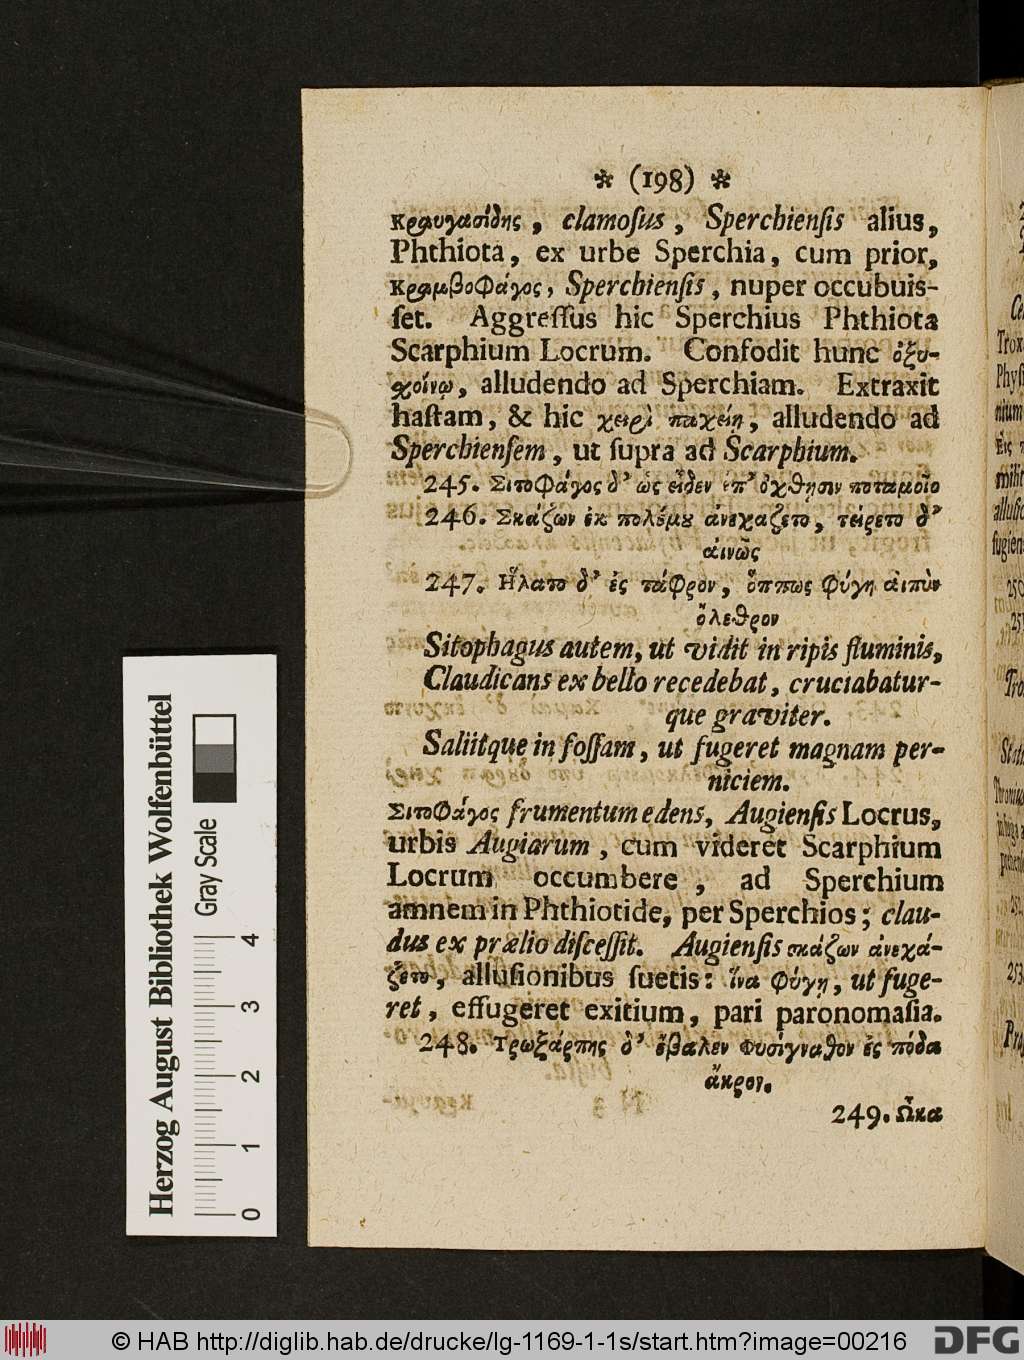 * (198) *
κραυγασίδης, clamoſus, Sperchienſis alius,
Phthiota, ex urbe Sperchia, cum prior,
κραμβοφάγος, Sperchienſis, nuper occubuiſ-
ſet. Aggreſſus hic Sperchius Phthiota
Scarphium Locrum. Confodit hunc ὀξυ-
χοίνῳ, alludendo ad Sperchiam. Extraxit
haſtam, & hic χειρὶ παχείῃ, alludendo ad
Sperchienſem, ut ſupra ad Scarphium.
245. Σιτοφάγος δ' ὡς εἶδεν ἐπ' ὄχθῃσιν ποταμοῖο
246. Σκάζων ἐκ πολέμου ἀνεχάζετο, τείρετο δ'
αἰνῶς
247. Ηλατο δ' ἐς τάφρον, ὅππως φύγῃ αἰπὺν
ὄλεθρον
Sitophagus autem, ut vidit in ripis fluminis,
Claudicans ex bello recedebat, cruciabatur-
que graviter.
Saliitque in foſſam, ut fugeret magnam per-
niciem.
Σιτοφάγος frumentum edens, Augienſis Locrus,
urbis Augiarum, cum videret Scarphium
Locrum occumbere, ad Sperchium
amnem in Phthiotide, per Sperchios; clau-
dus ex prælio diſceſſit. Augienſis σκάζων ἀνεχά-
ζετο, alluſionibus ſuetis: ἵνα φύγῃ, ut fuge-
ret, effugeret exitium, pari paronomaſia.
248. Τρωξάρτης δ' ἔβαλεν Φυσίγναθον ἐς πόδα
ἄκρον.
249. Ὦκα
Herzog August Bibliothek Wolfenbüttel
Gray Scale
0 1 2 3 4
© HAB http://diglib.hab.de/drucke/lg-1169-1-1s/start.htm?image=00216
DFG